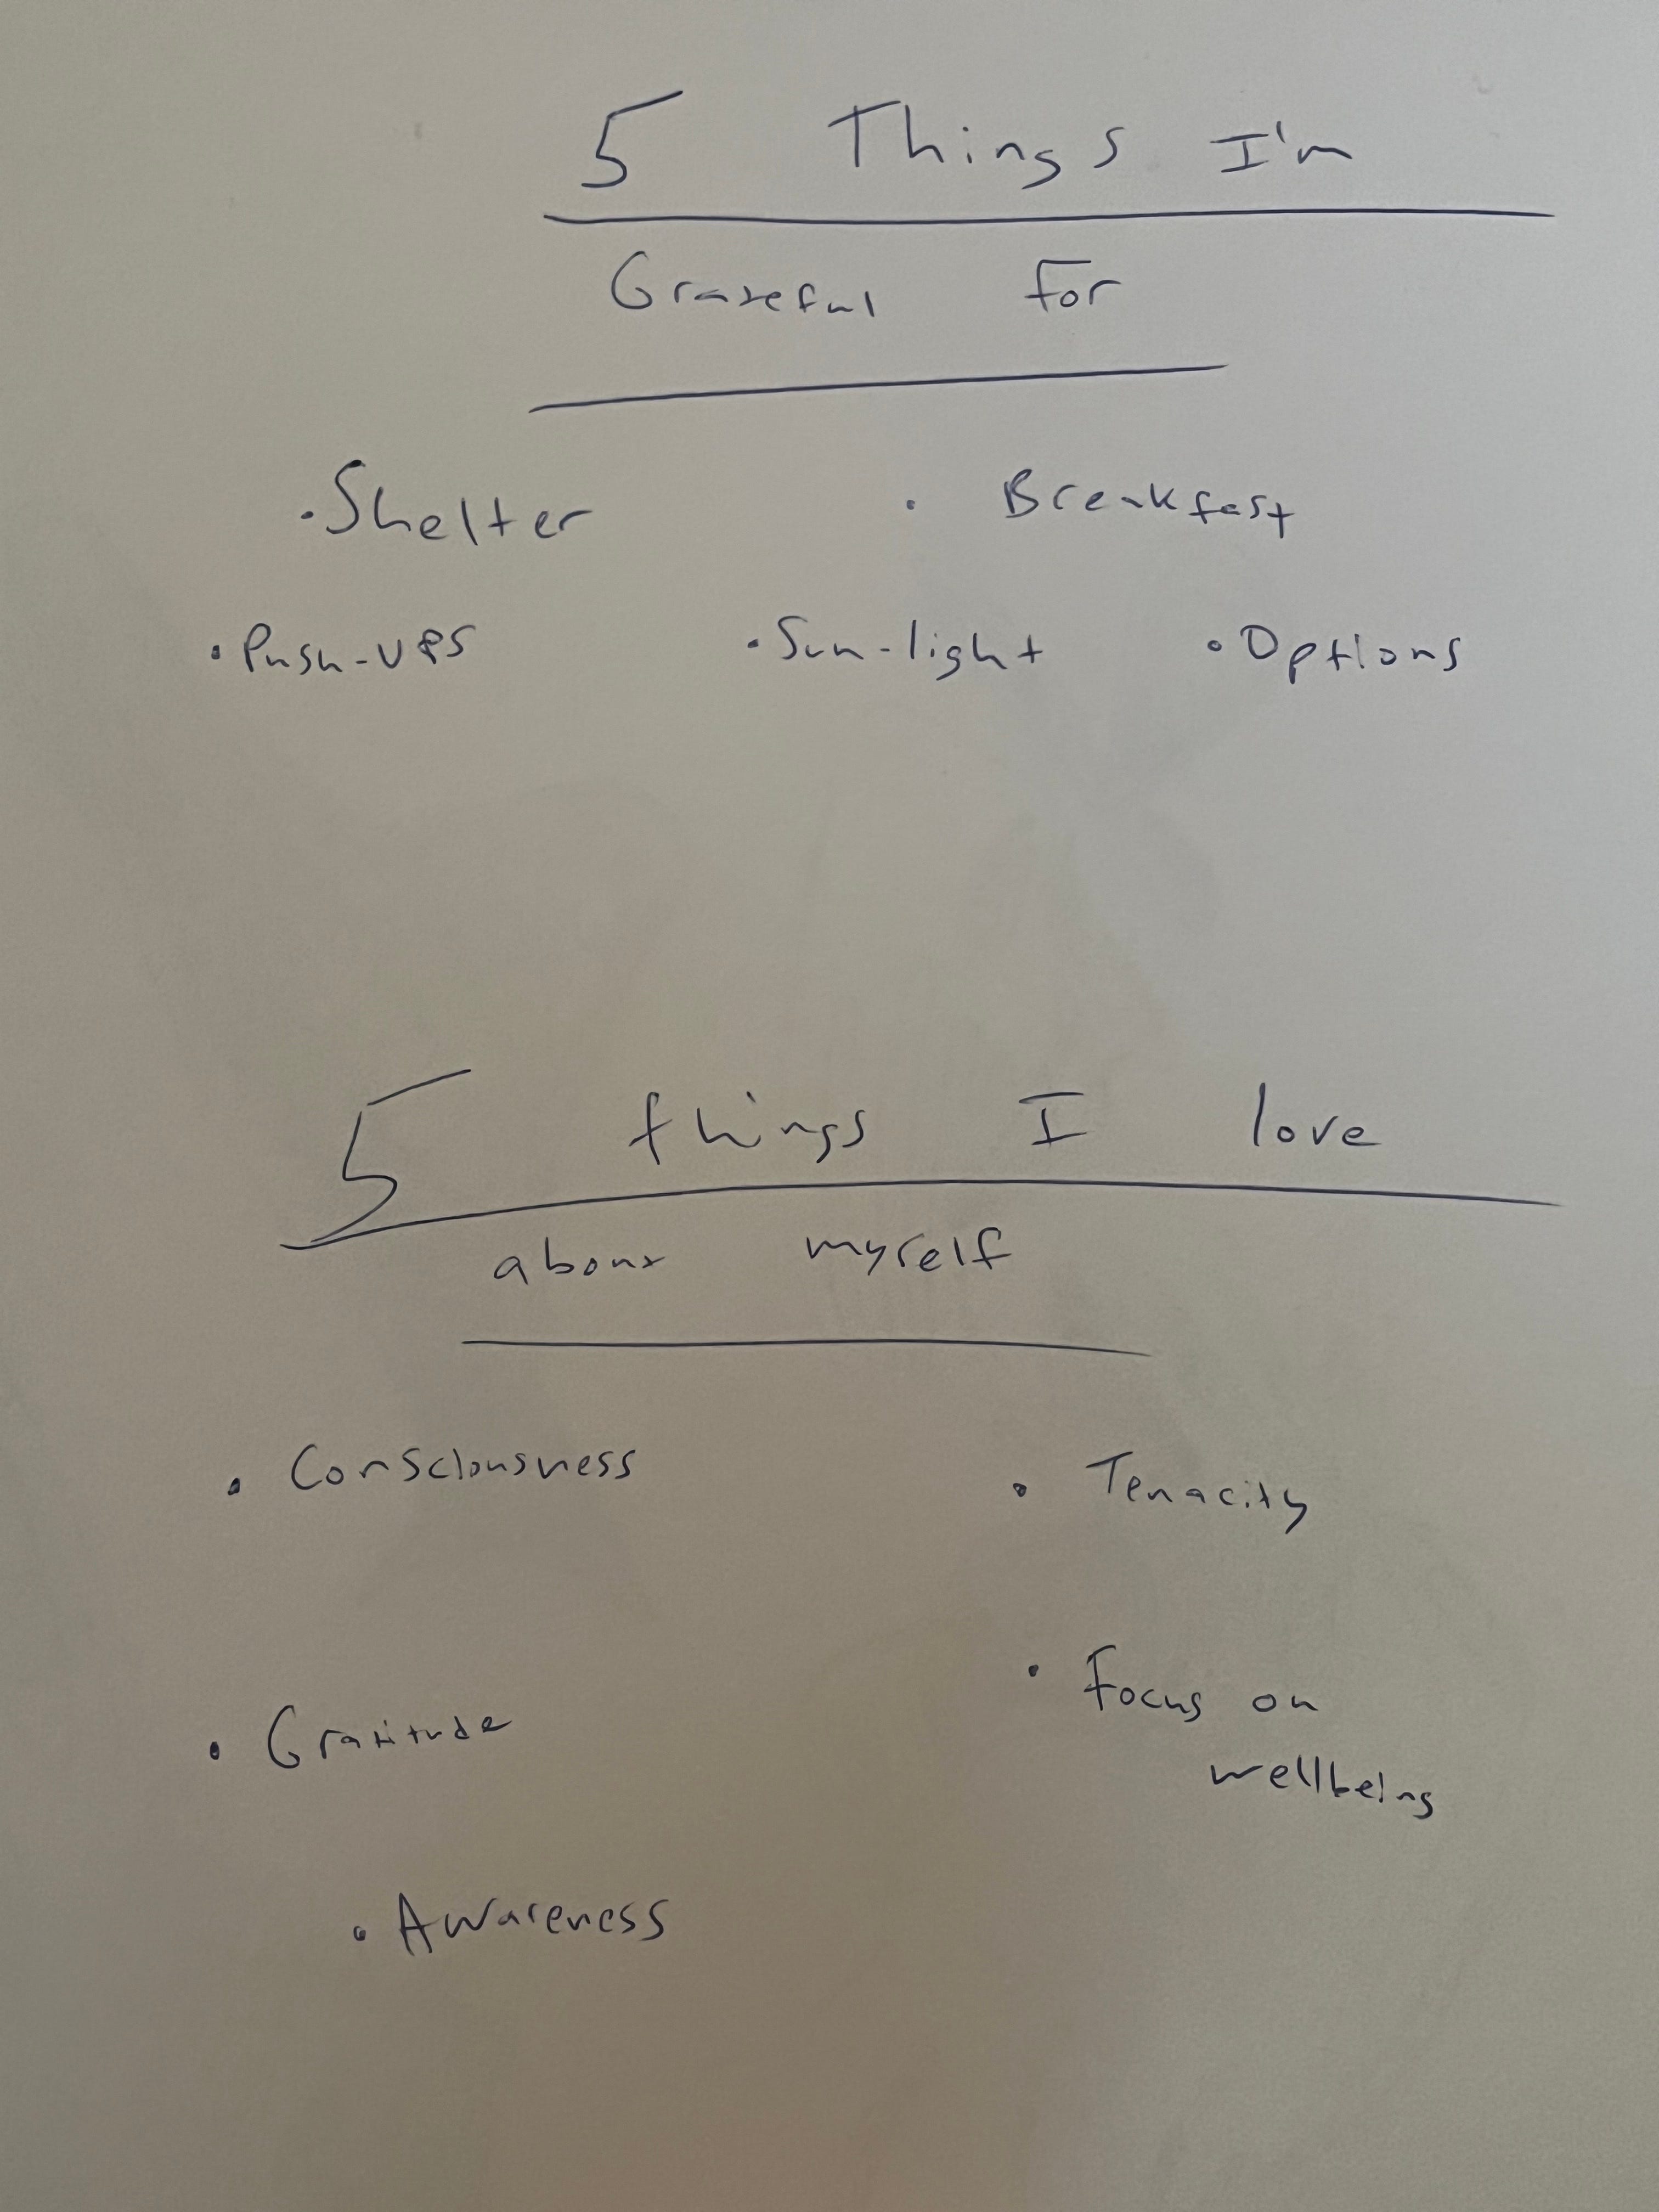 5 Things I'm
Grateful For
• Shelter • Breakfast
• Push-ups • Sun-light • Options
5 things I love
about myself
• Consciousness • Tenacity
• Focus on
• Gratitude
wellbeing
• Awareness